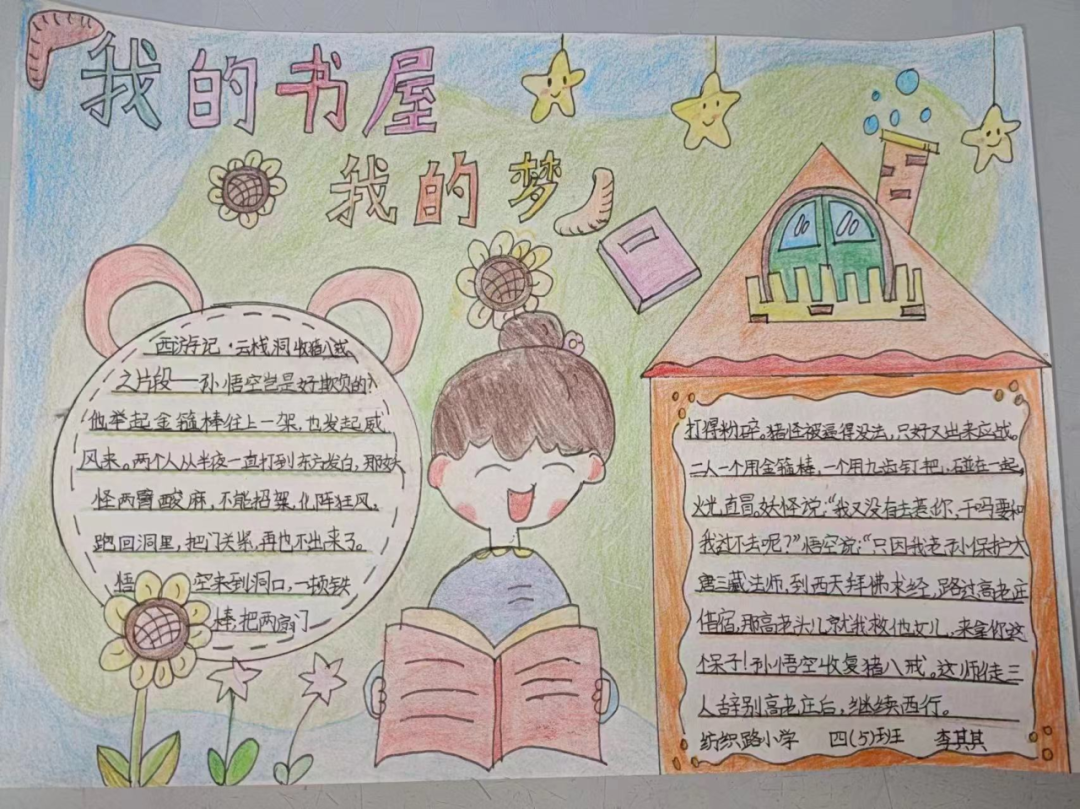 我的书屋
我的梦
西游记·云栈洞收猪八戒
之片段——孙悟空岂是好欺负的?
他举起金箍棒往上一架,也发起威
风来。两个人从半夜一直打到东方发白,那妖
怪两臂酸麻,不能招架,化阵狂风,
跑回洞里,把门关紧,再也不出来了。
悟空来到洞口,一顿铁
棒,把两扇门
打得粉碎。猪怪被逼得没法,只好又出来应战。
二人一个用金箍棒,一个用九齿钉把,碰在一起,
火光直冒。妖怪说:“我又没有去惹你,干吗要和
我过不去呢?”悟空说:“只因我老孙保护大
唐三藏法师,到西天拜佛求经,路过高老庄
借宿,那高老头儿就我救他女儿,来拿你这
个呆子!孙悟空收复猪八戒。这师徒三
人辞别高老庄后,继续西行。
纺织路小学 四(5)班 李其其